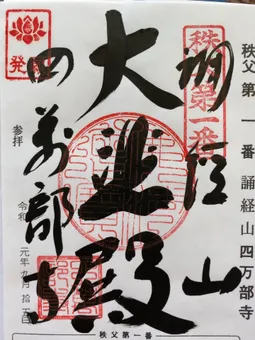 秩父第一番 誦経山四万部寺
秩父第一番
誦経山
大悲殿
四萬部寺
発
参拝
令和 元年九月拾五日
秩父第一番